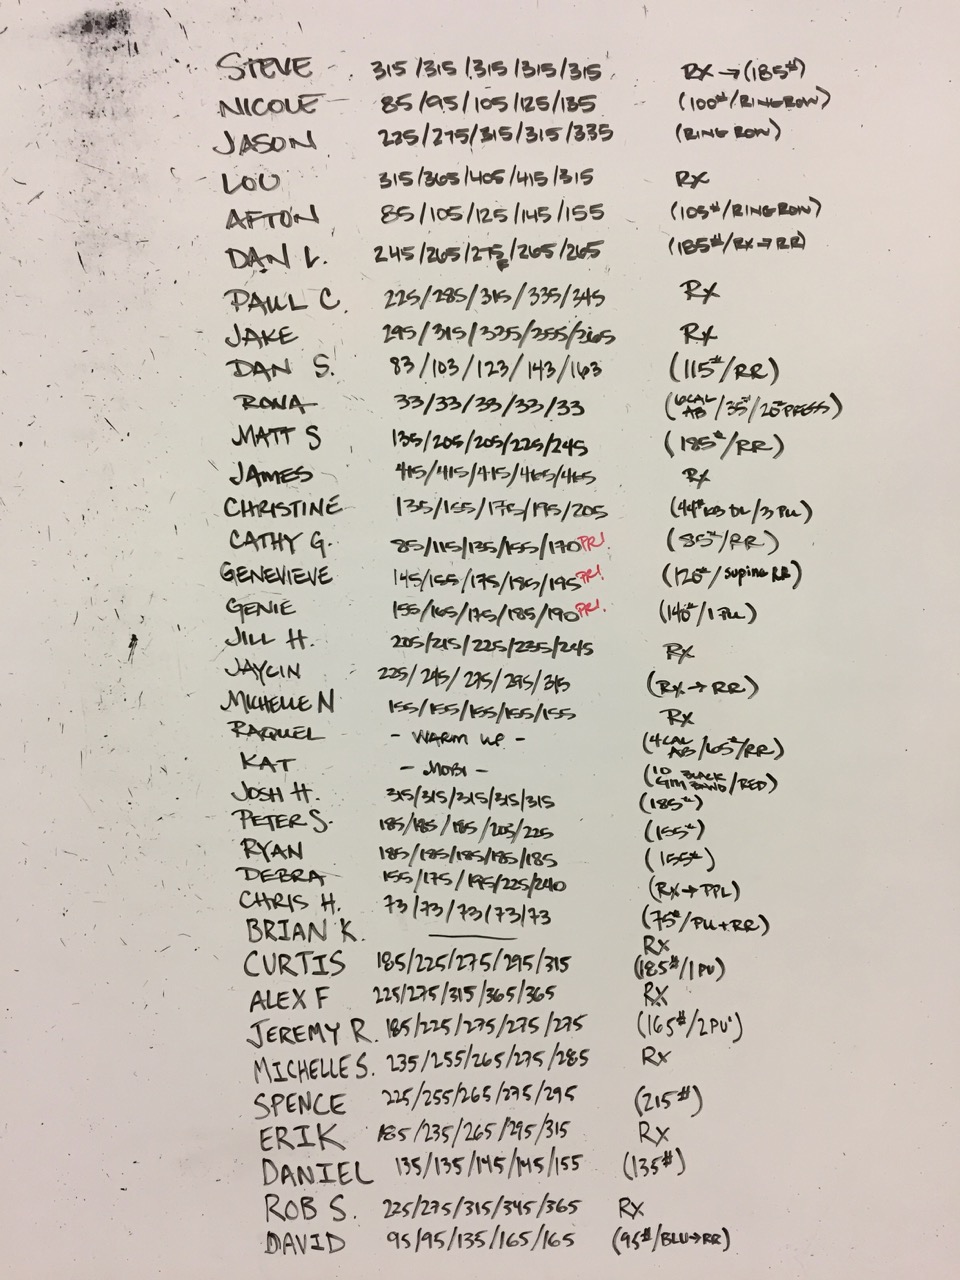 STEVE 315/315/315/315/315 RX→(185#)
NICOLE 85/95/105/125/135 (100#/RING ROW)
JASON 225/275/315/315/335 (RING ROW)
LOU 315/365/405/415/315 RX
AFTON 85/105/125/145/155 (105#/RING ROW)
DAN L. 245/265/275/265/265 (185#/RX→RR)
PAUL C. 225/285/315/335/345 RX
JAKE 295/315/335/355/265 RX
DAN S. 83/103/123/143/163 (115#/RR)
RONA 33/33/33/33/33 (6CAL AB/35#/25#PRESS)
MATT S 135/205/205/225/245 (185#/RR)
JAMES 415/415/415/465/465 RX
CHRISTINE 135/155/175/195/205 (44#KB DL/3 PU)
CATHY G. 85/115/135/155/170 PR! (85#/RR)
GENEVIEVE 145/155/175/185/195 PR! (125#/supine RR)
GENIE 155/165/175/185/190 PR! (145#/1 PU)
JILL H. 205/215/225/235/245 RX
JAYLIN 225/245/275/295/315 (RX→RR)
MICHELLE N 155/155/155/155/155 RX
RAQUEL - WARM UP - (4CAL AB/65#/RR)
KAT - MOBI - (10 BLACK GYM BAND/RED)
JOSH H. 315/315/315/315/315 (185#)
PETER S. 185/185/185/205/225 (155#)
RYAN 185/185/185/185/185 (155#)
DEBRA 155/175/195/225/240 (RX→PPL)
CHRIS H. 73/73/73/73/73 (75#/PU+RR)
BRIAN K. —— RX
CURTIS 185/225/275/295/315 (185#/1PU)
ALEX F 225/275/315/365/365 RX
JEREMY R. 185/225/275/275/275 (165#/2PU')
MICHELLE S. 235/255/265/275/285 RX
SPENCE 225/255/265/275/295 (215#)
ERIK 185/235/265/295/315 RX
DANIEL 135/135/145/145/155 (135#)
ROB S. 225/275/315/345/365 RX
DAVID 95/95/135/165/165 (95#/BLU→RR)